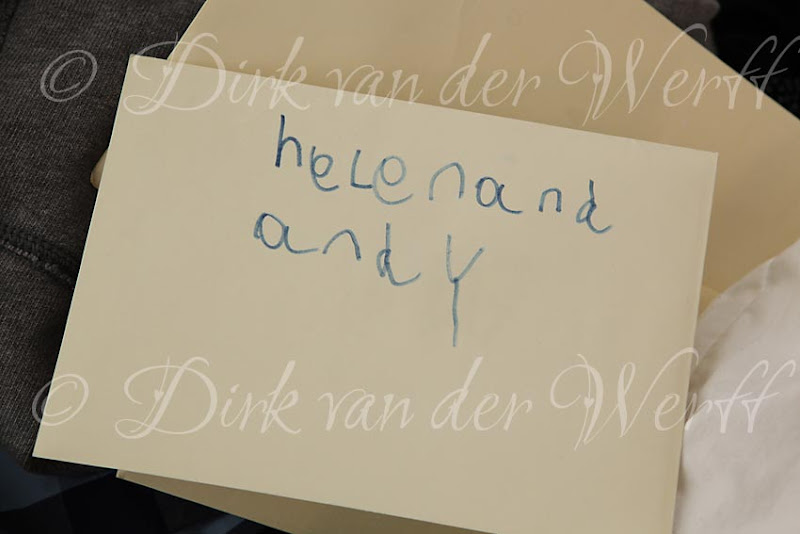 © Dirk van der Werff
helenand
andy
© Dirk van der Werff